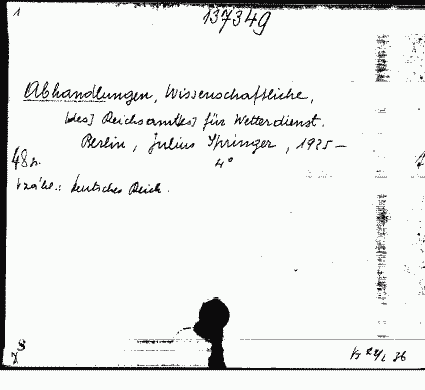 1
137349
Abhandlungen, Wissenschaftliche,
[des] Reichsamt[es] für Wetterdienst.
Berlin, Julius Springer, 1925 —
4°
48
deutsches Reich.
8